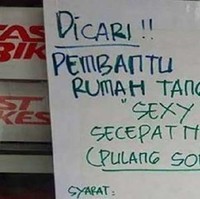 FAST
BIKES
DICARI !!
PEMBANTU
RUMAH TANG
"SEXY
SECEPATN
(PULANG SOR
SYARAT: